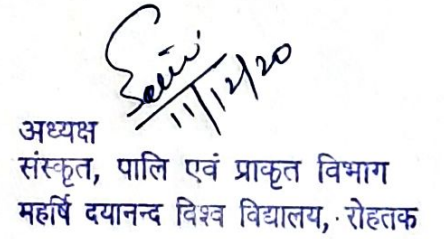 11/12/20
अध्यक्ष
संस्कृत, पालि एवं प्राकृत विभाग
महर्षि दयानन्द विश्व विद्यालय, रोहतक